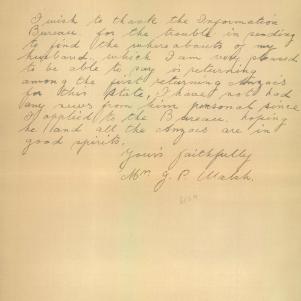 I wish to thank the Information
Bureau for the trouble in sending
to find the whereabouts of my
husband. which I am now pleased
to be able to say is returning
among the first returning Anzacs
for this State, I have not had
any news from him personal since
I applied to the Bureau. hoping
he land all the Anzacs are in
good spirits.
Yours faithfully
Mrs J. P. Walsh.